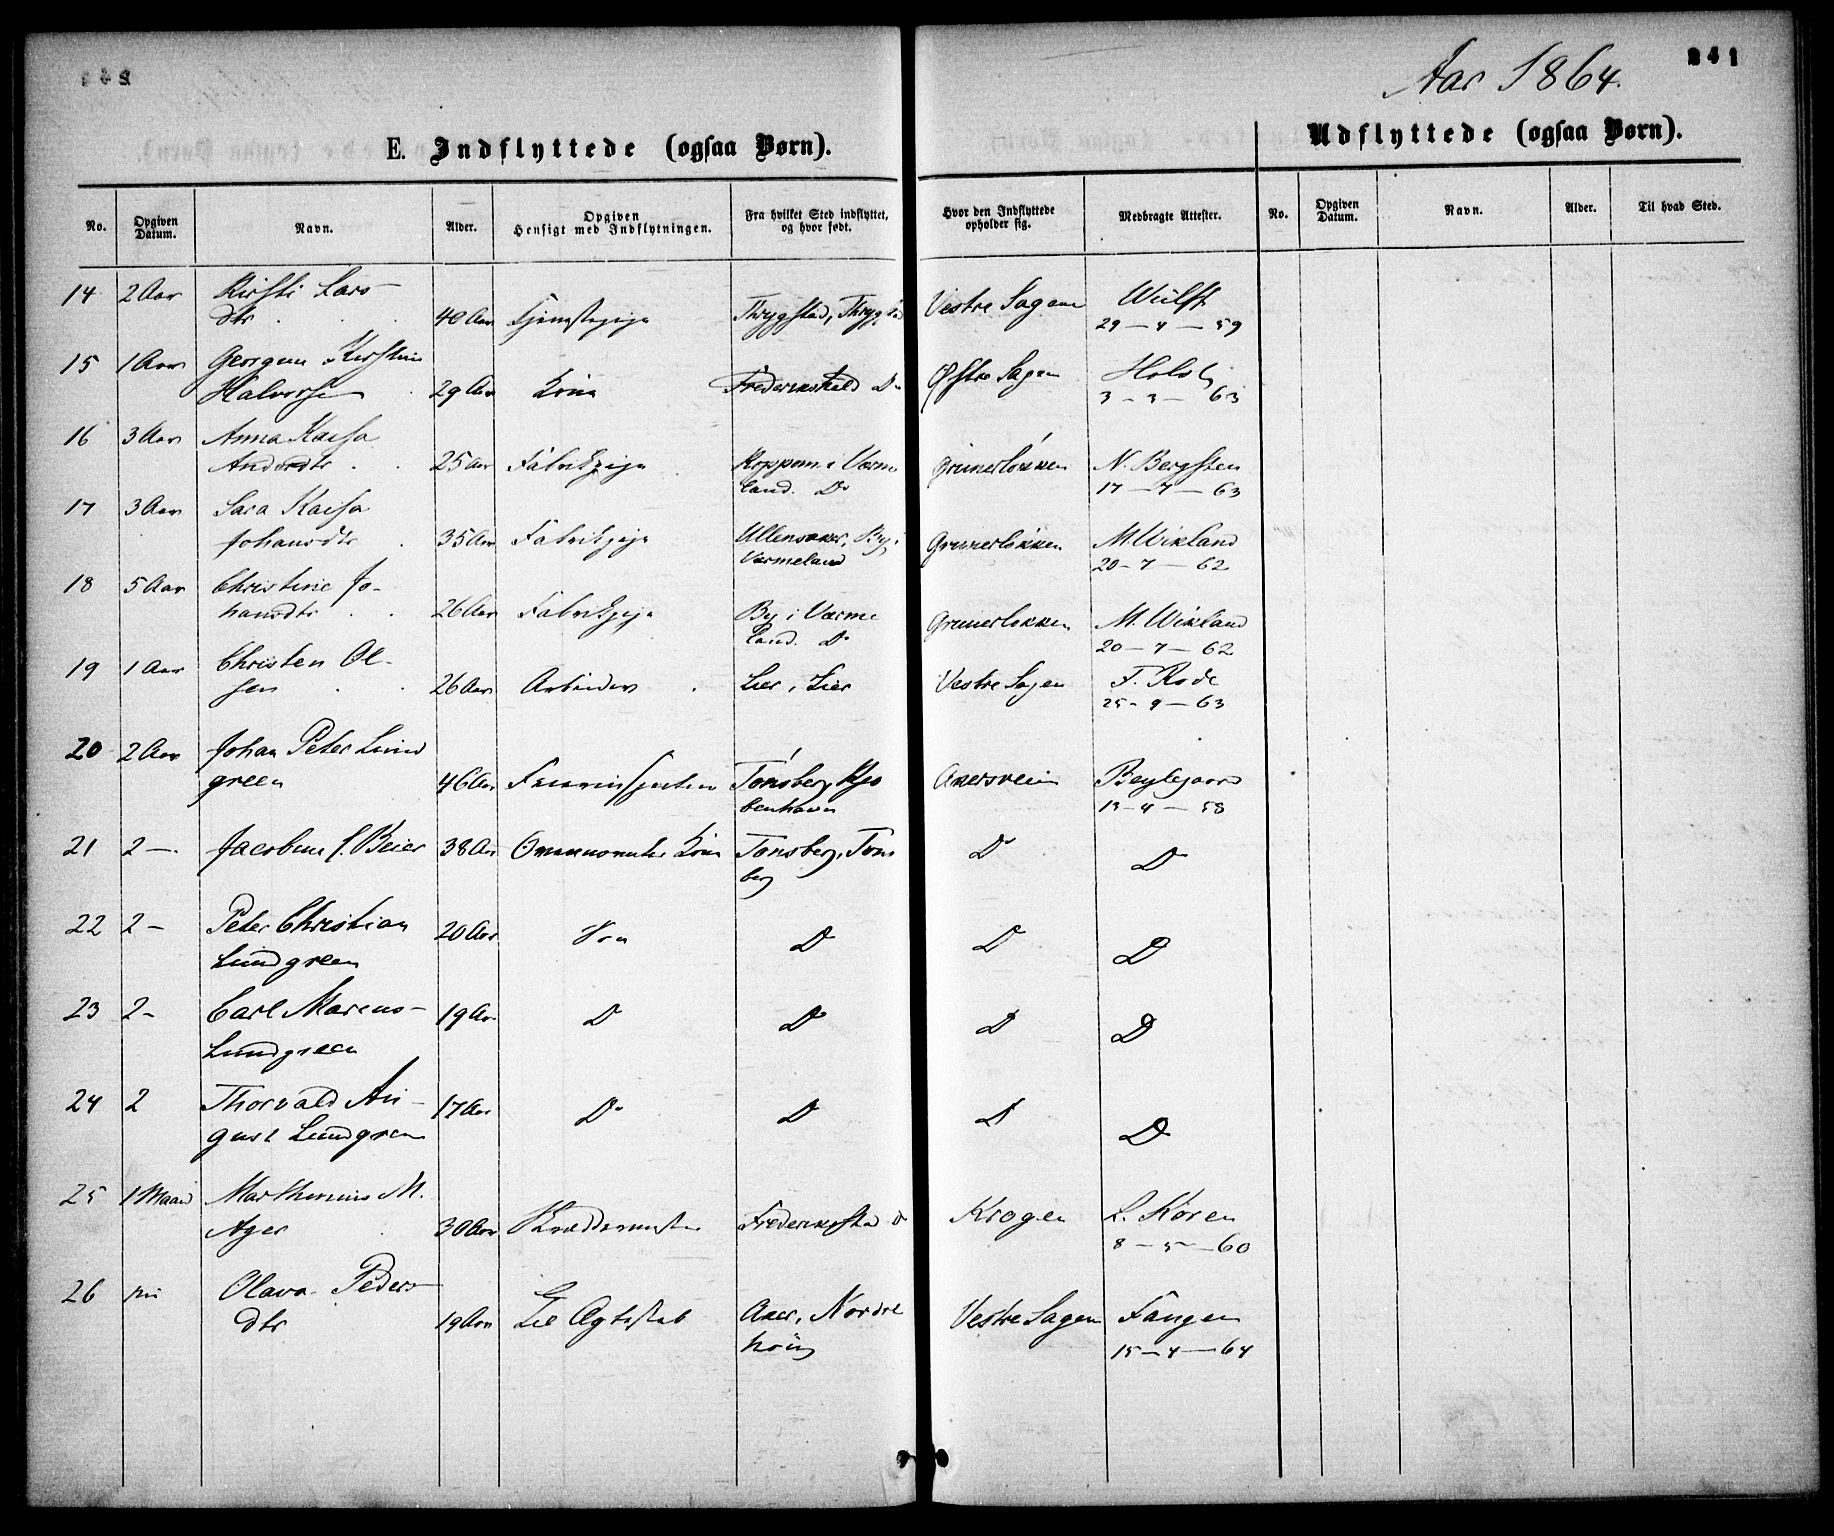 Aar 1864.
241
E. Indflyttede (ogsaa Børn).
Udflyttede (ogsaa Børn).
No. Opgiven Datum. Navn. Alder. Opgiven Hensigt med Indflytningen. Fra hvilket Sted indflyttet, og hvor født. Hvor den Indflyttede opholder sig. Medbragte Attester. No. Opgiven Datum. Navn. Alder. Til hvad Sted.
14 2 Aar Kirsti Lars-
dtr 40 Aar Tjenstepige Thrygstad, Vestre Sagene Wulff
29-4-59
15 1 Aar Georgine Kirstine
Halvorsen 29 Aar Kone Frederikshald Do Østre Sagen Holst
3-3-63
16 3 Aar Anna Kaisa
Andersdtr 25 Aar Fabrikpige Koppom i Værme Grünerløkken N. Bergsten
land. Do 17-7-63
17 3 Aar Sara Kaisa
Johansdtr 35 Aar Fabrikpige Ullensaker, By i Grünerløkken M. Wikland
Værmeland 20-7-62
18 5 Aar Christine Jo-
hansdtr 26 Aar Fabrikpige By i Værme Grünerløkken M. Wikland
land. Do 20-7-62
19 1 Aar Christen Ol-
sen 26 Aar Arbeider Lier, Lier Vestre Sagen F. Rode
25-9-63
20 2 Aar Johan Peter Lund
green 46 Aar Tönsberg, Kjø Akersveien
benhavn 13-4-58
21 2- Jacobine f. Beier 38 Aar Kone Tønsberg, Tøns Do Do
berg
22 2- Peter Christian 20 Aar Do Do Do
Lundgreen
23 2- Carl Marcus 19 Aar Do Do Do Do
Lundgreen
24 2 Thorvald Au- 17 Aar Do Do Do Do
gust Lundgreen
25 1 Maaned Marthinius M.
Ager 30 Aar Skreddermester Frederikstad Do Krogen L. Koren
8-5-60
26 nu Olava Peders
dtr 19 Aar Til Ægteskab Aker, Nordre Vestre Sagen Fangen
höug 15-4-64